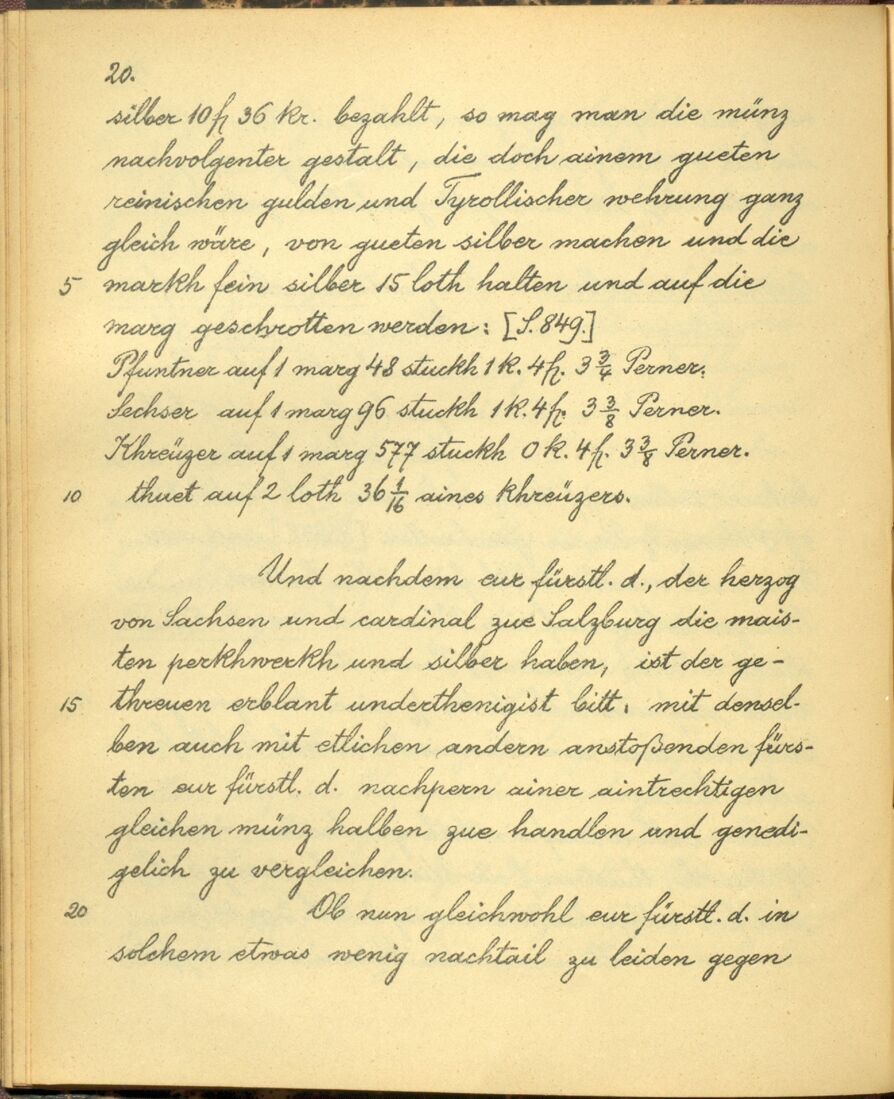 20.
silber 10 fl 36 kr. bezahlt, so mag man die münz
nachvolgenter gestalt, die doch ainem gueten
reinischen gulden und Tyrollischer wehrung ganz
gleich wäre, von gueten silber machen und die
5 markh fein silber 15 loth halten und auf die
marg geschrotten werden: [S. 849.]
Pfuntner auf 1 marg 48 stuckh 1 k. 4 f. 3 3/4 Perner.
Sechser auf 1 marg 96 stuckh 1 k. 4 f. 3 3/8 Perner.
Khreüzer auf 1 marg 577 stuckh 0 k. 4 f. 3 3/8 Perner.
10 thuet auf 2 loth 36 1/16 aines khreüzers.
Und nachdem eur fürstl. d., der herzog
von Sachsen und cardinal zue Salzburg die mais-
ten perkhwerkh und silber haben, ist der ge-
15 threuen erblant underthenigist bitt, mit densel-
ben auch mit etlichen andern anstoßenden fürs-
ten eur fürstl. d. nachpern ainer aintrechtigen
gleichen münz halben zue handlen und genedi-
gelich zu vergleichen.
20 Ob nun gleichwohl eur fürstl. d. in
solchem etwas wenig nachtail zu leiden gegen